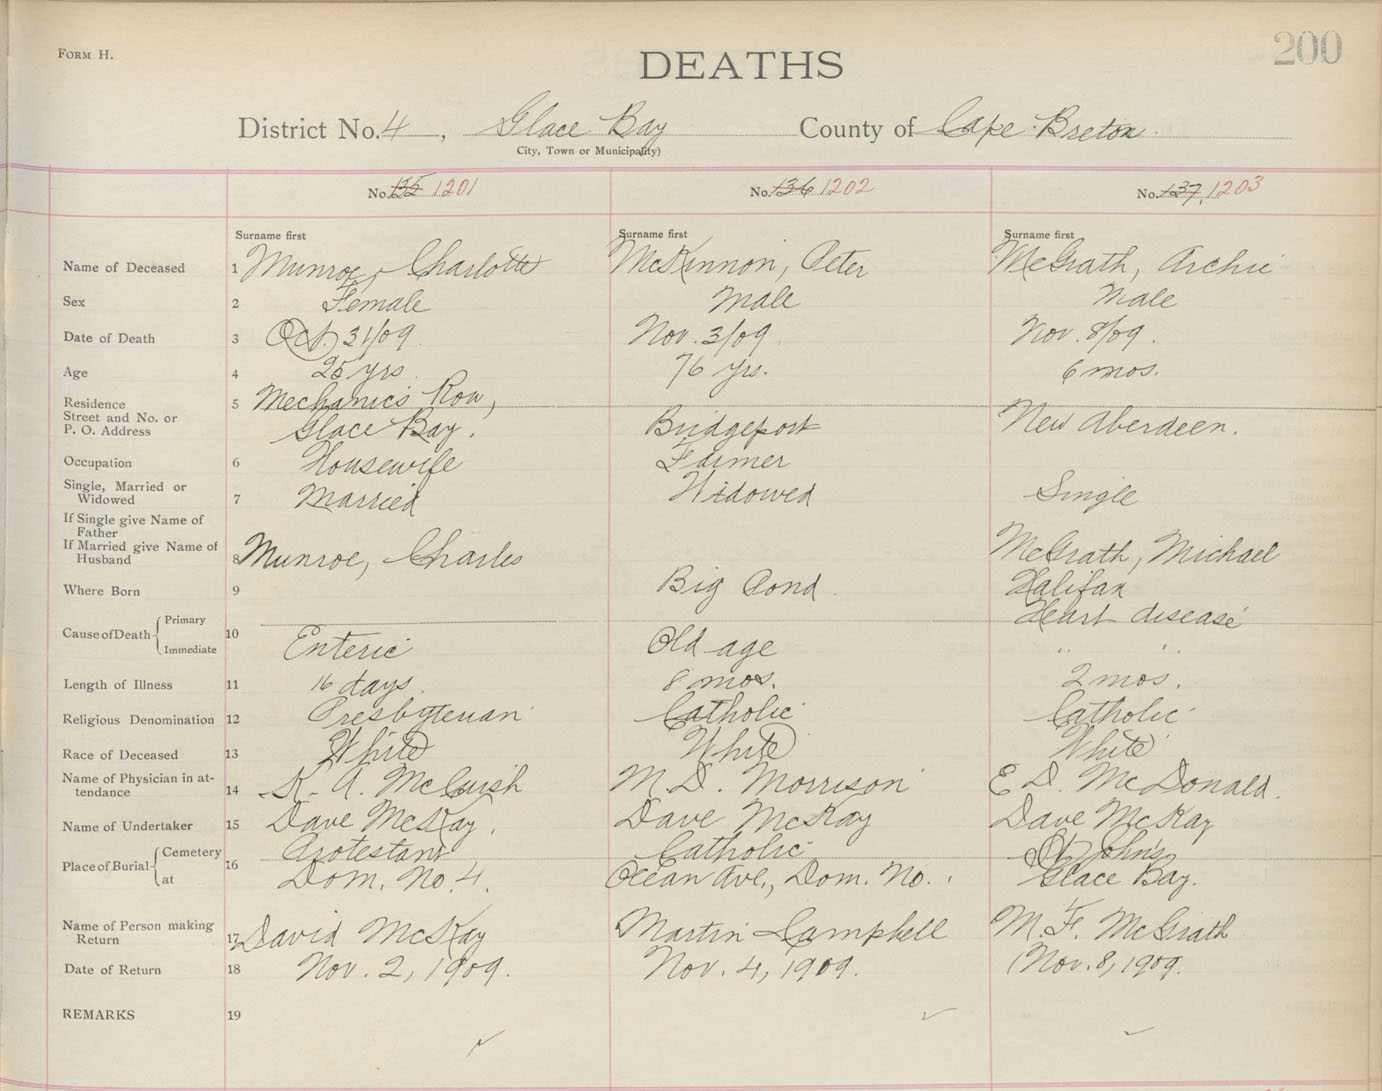 FORM H.
200
DEATHS
District No. 4, Glace Bay County of Cape Breton.
City, Town or Municipality)
No. 135 1201 No. 136 1202 No. 137, 1203
Surname first Surname first Surname first
Name of Deceased 1 Munroe, Charlotte McKinnon, Peter McGrath, Archie
Sex 2 Female Male Male
Date of Death 3 Oct. 31/09 Nov. 3/09 Nov. 8/09.
Age 4 25 yrs 76 yrs. 6 mos.
Residence 5 Mechanics Row,
Street and No. or
P. O. Address Glace Bay. Bridgeport New Aberdeen.
Occupation 6 Housewife Farmer
Single, Married or
Widowed 7 Married Widowed Single
If Single give Name of
Father
If Married give Name of
Husband 8 Munroe, Charles McGrath, Michael
Where Born 9 Big Pond. Halifax
Cause of Death Primary Heart disease
10
Immediate Enteric Old age " "
Length of Illness 11 16 days. 8 mos. 2 mos.
Religious Denomination 12 Presbyterian Catholic Catholic
Race of Deceased 13 White White White
Name of Physician in at-
tendance 14 K. A. McCuish M. D. Morrison E D. McDonald.
Name of Undertaker 15 Dave McKay. Dave McKay Dave McKay
Place of Burial Cemetery Protestant Catholic St John's
16
at Dom. No. 4. Ocean Ave., Dom. No. Glace Bay.
Name of Person making
Return 17 David McKay Martin Campbell M. F. McGrath
Date of Return 18 Nov. 2, 1909. Nov. 4, 1909. Nov. 8, 1909.
REMARKS 19